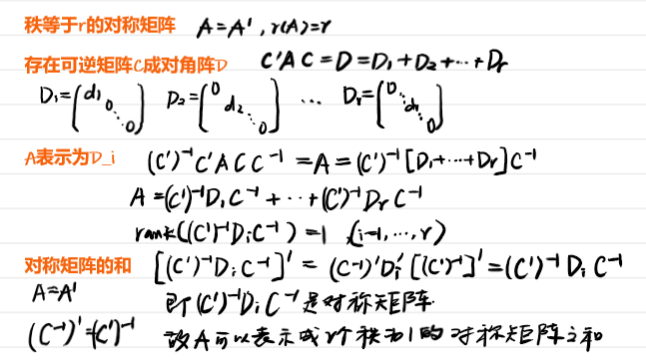 秩等于r的对称矩阵 A=A', r(A)=r
存在可逆矩阵C成对角阵D C'AC=D=D₁+D₂+…+Dr
D₁=(d₁ 0 ⋱ 0) D₂=(0 d₂ ⋱ 0) … Dr=(0 ⋱ dr ⋱ 0)
A表示为D_i (C')⁻¹C'ACC⁻¹=A=(C')⁻¹[D₁+…+Dr]C⁻¹
A=(C')⁻¹D₁C⁻¹+…+(C')⁻¹DrC⁻¹
rank((C')⁻¹DiC⁻¹)=1 (i=1,…,r)
对称矩阵的和 [(C')⁻¹DiC⁻¹]'=(C⁻¹)'Di'[(C')⁻¹]'=(C')⁻¹DiC⁻¹
A=A' 即(C')⁻¹DiC⁻¹是对称矩阵.
(C⁻¹)'=(C')⁻¹ 故A可以表示成r个秩为1的对称矩阵之和